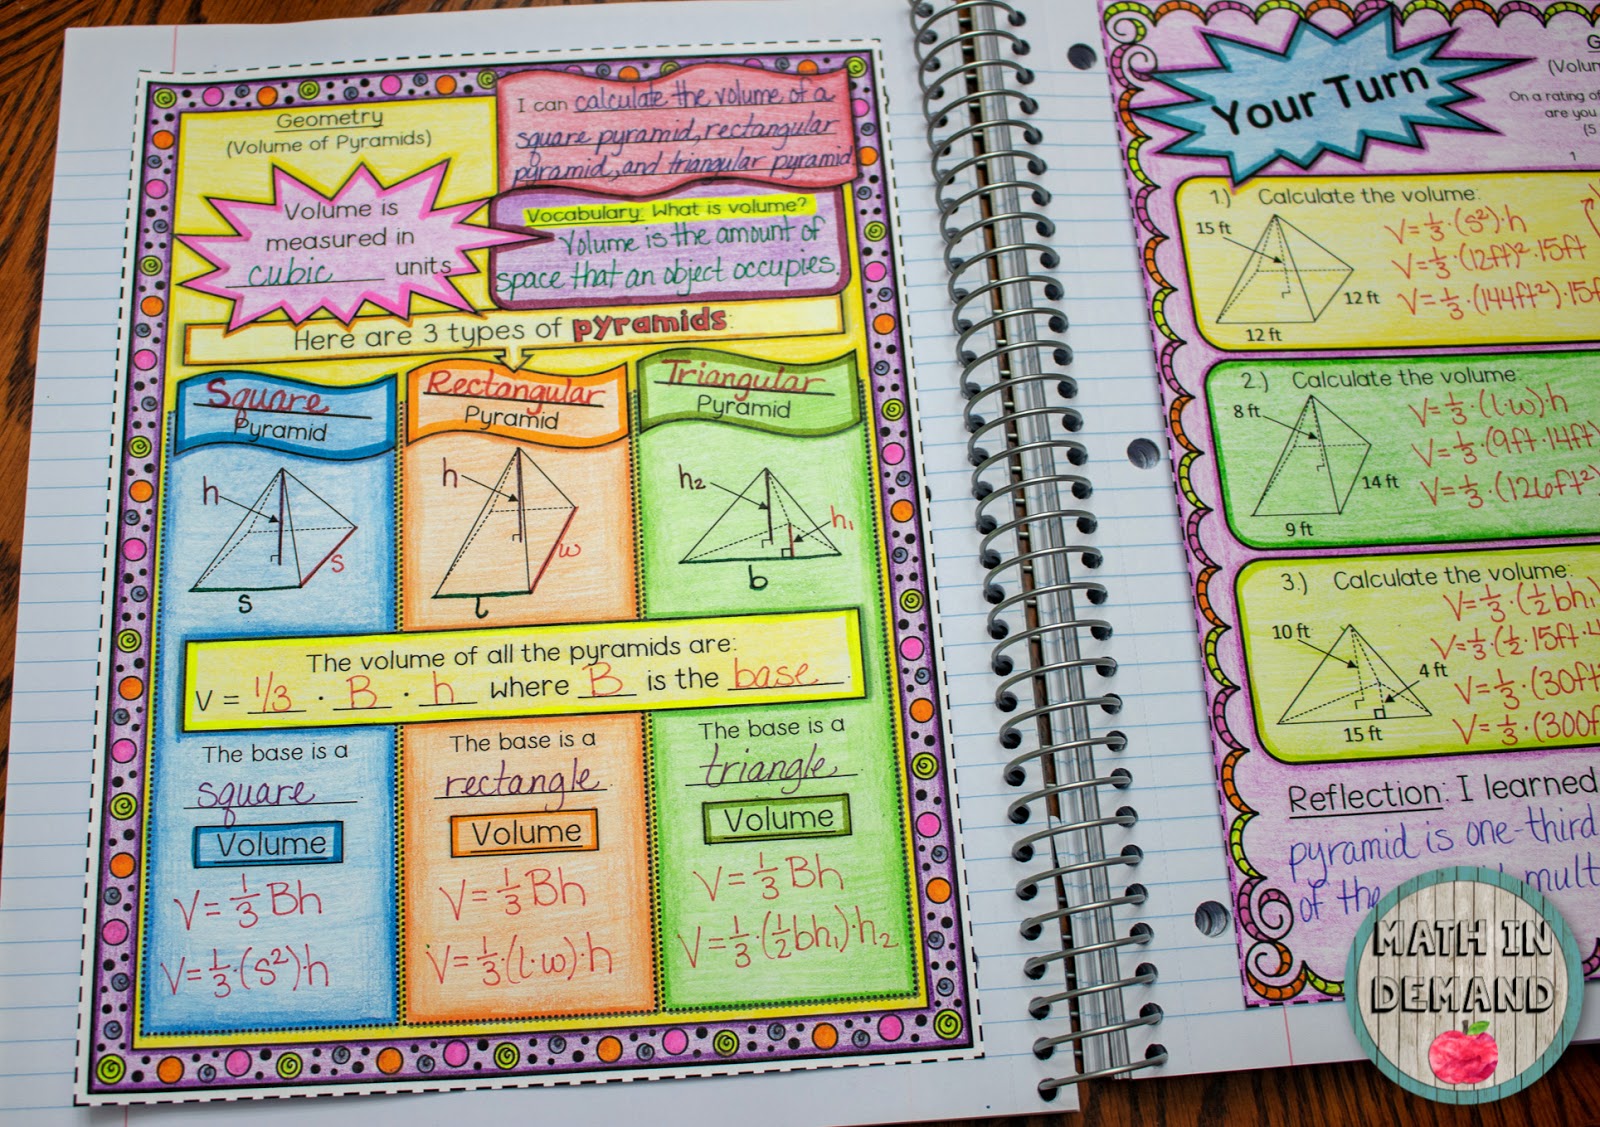 Geometry
(Volume of Pyramids)
I can calculate the volume of a
square pyramid, rectangular
pyramid, and triangular pyramid
Volume is
measured in
cubic units
Vocabulary: What is volume?
Volume is the amount of
space that an object occupies.
Here are 3 types of pyramids:
Square
Pyramid
Rectangular
Pyramid
Triangular
Pyramid
h
s
s
h
w
l
h₂
h₁
b
The volume of all the pyramids are:
V = 1/3 · B · h where B is the base.
The base is a
square
Volume
V = 1/3 Bh
V = 1/3 · (s²) · h
The base is a
rectangle.
Volume
V = 1/3 Bh
V = 1/3 · (l · w) · h
The base is a
triangle.
Volume
V = 1/3 Bh
V = 1/3 · (1/2 bh₁) · h₂
Your Turn
G
(Volum
On a rating of
are you
(5
1
1.) Calculate the volume:
15 ft
12 ft
12 ft
V = 1/3 · (s²) · h
V = 1/3 · (12ft)² · 15ft
V = 1/3 · (144ft²) · 15f
2.) Calculate the volume:
8 ft
14 ft
9 ft
V = 1/3 · (l · w) · h
V = 1/3 · (9ft · 14ft)
V = 1/3 · (126ft²)
3.) Calculate the volume:
10 ft
4 ft
15 ft
V = 1/3 · (1/2 bh₁)
V = 1/3 · (1/2 · 15ft · 4
V = 1/3 · (30ft
V = 1/3 · (300f
Reflection: I learned
pyramid is one-third
of the mult
MATH IN
DEMAND